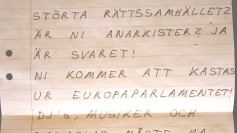 STÖRTA RÄTTSSAMHÄLLET?
ÄR NI ANARKISTER? JA
ÄR SVARET!
NI KOMMER ATT KASTAS
UR EUROPAPARLAMENTET!
DJ's, MUSIKER OCH
MÅSTE